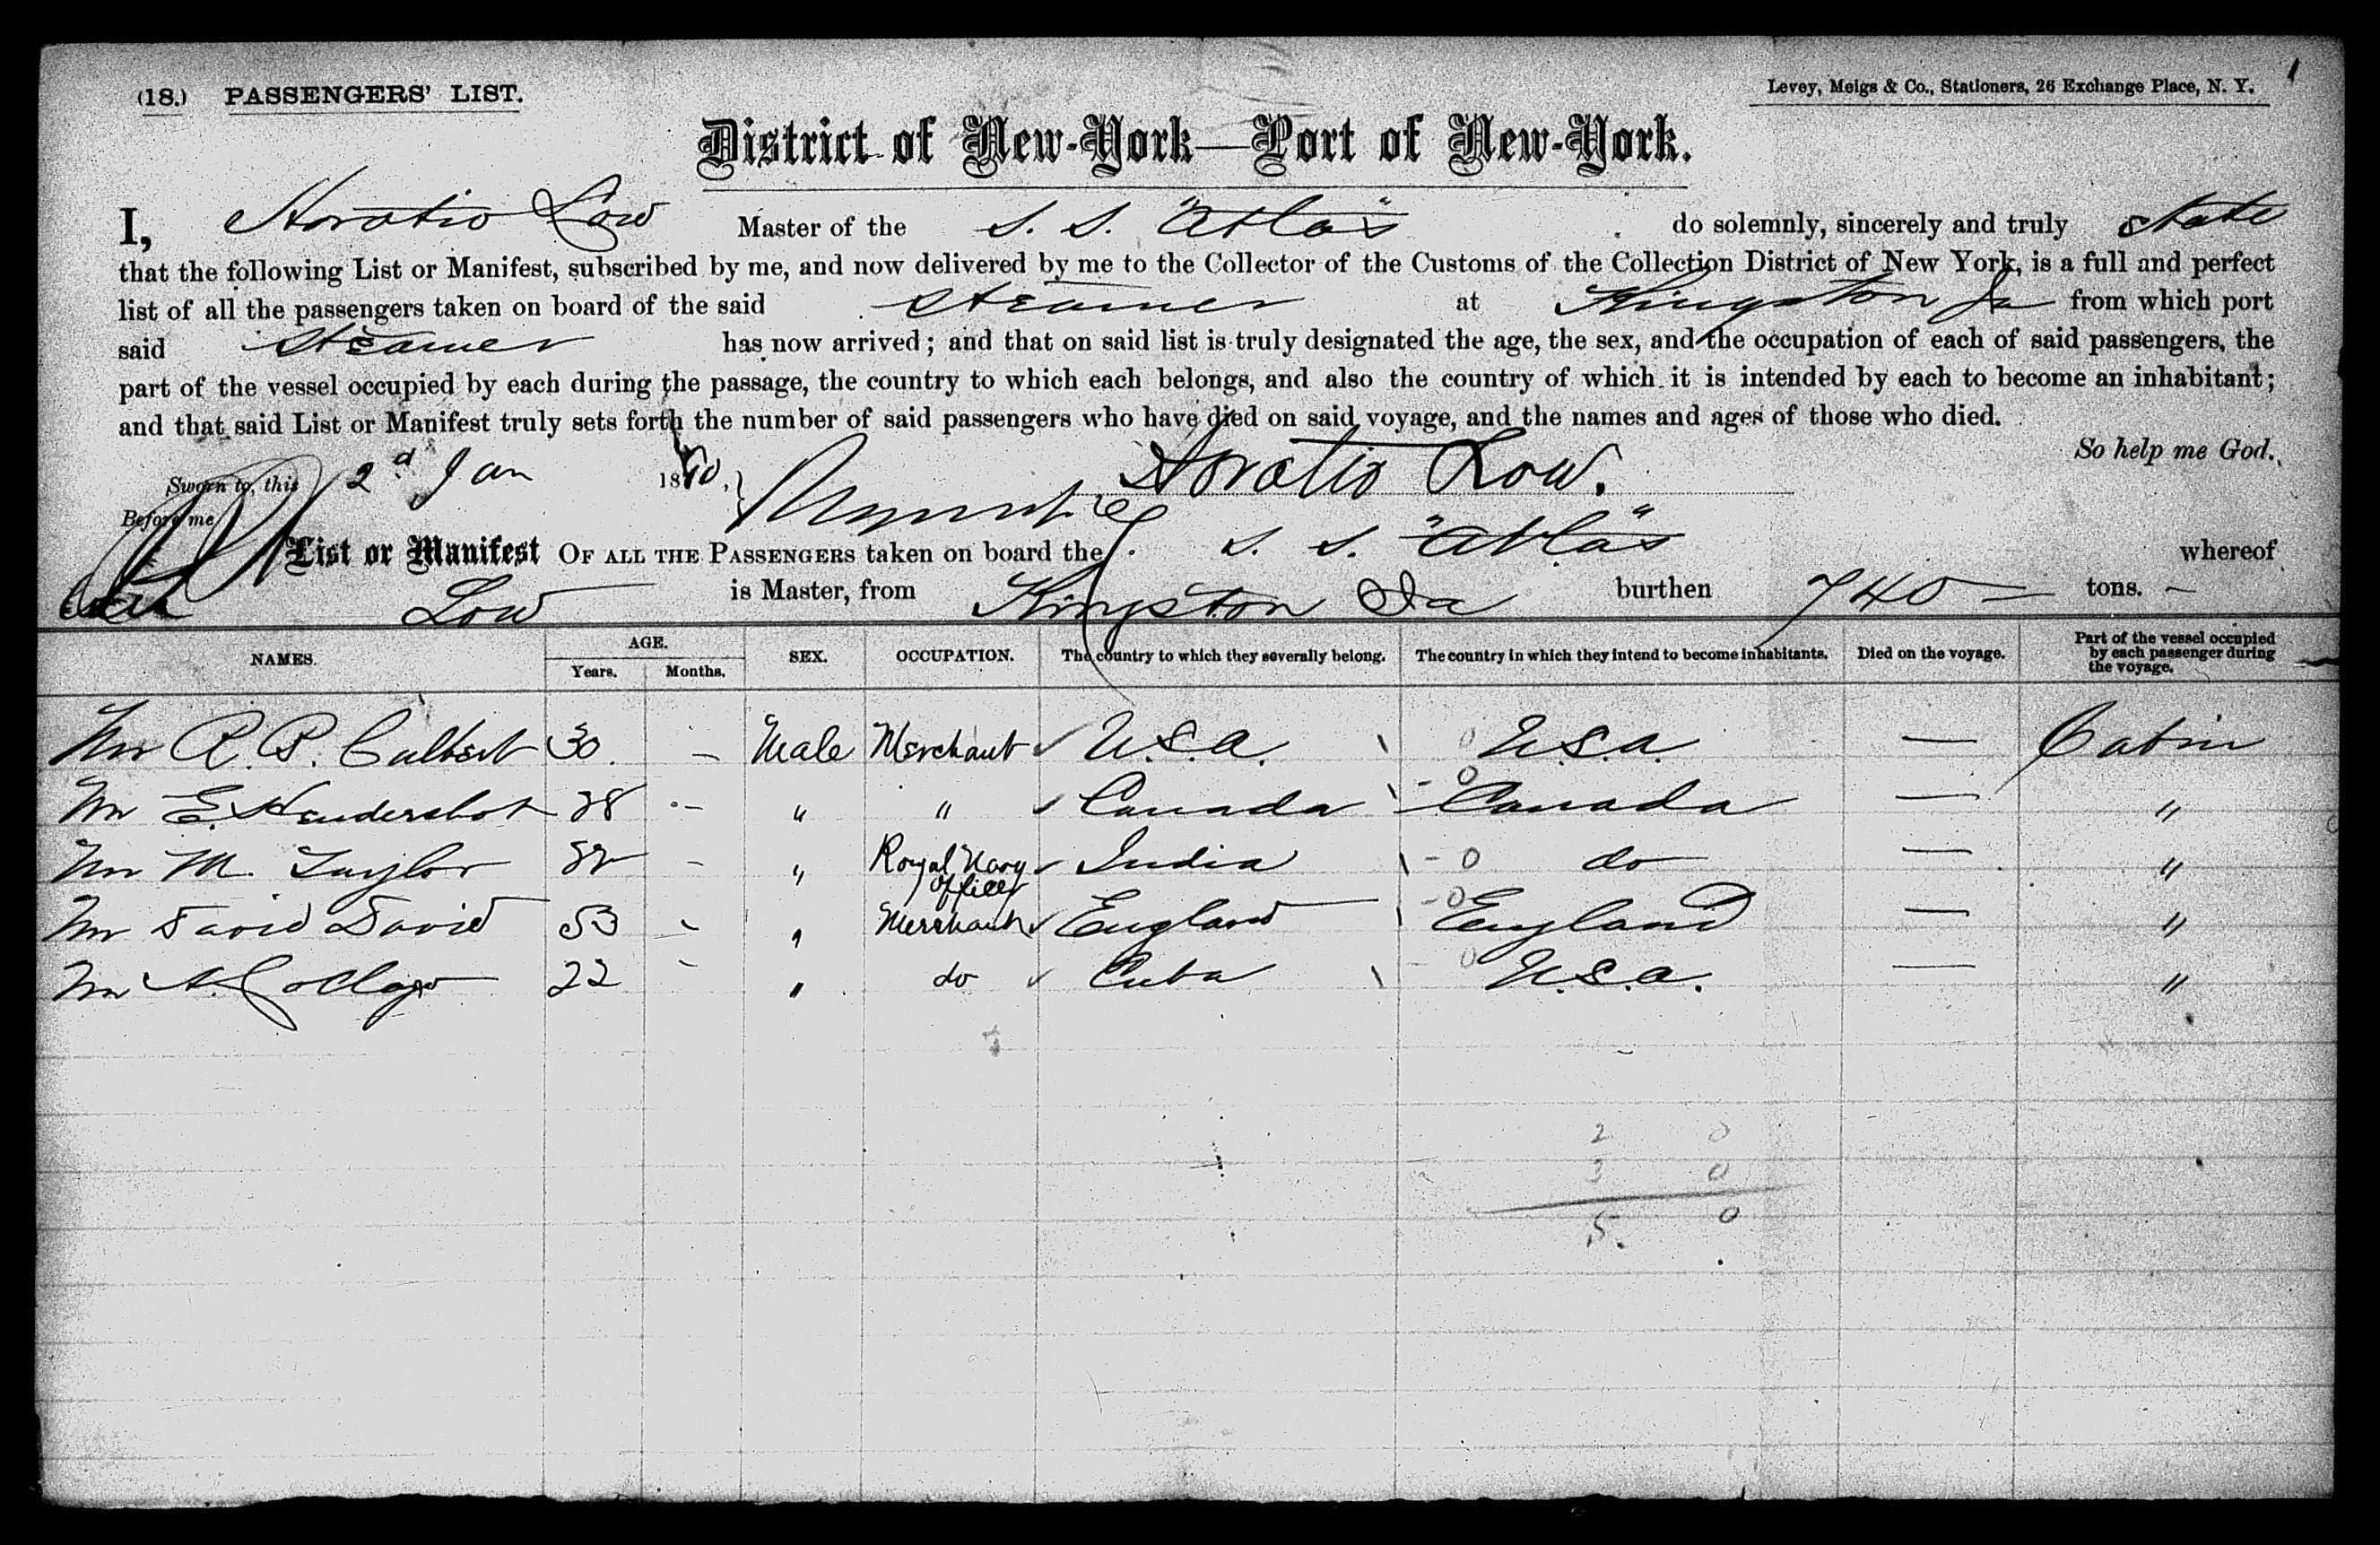 (18.) PASSENGERS' LIST.
Levey, Meigs & Co., Stationers, 26 Exchange Place, N. Y.
1
District of New-York—Port of New-York.
I, Horatio Low Master of the S. S. "Atlas" do solemnly, sincerely and truly State
that the following List or Manifest, subscribed by me, and now delivered by me to the Collector of the Customs of the Collection District of New York, is a full and perfect
list of all the passengers taken on board of the said Steamer at Kingston Ja from which port
said Steamer has now arrived; and that on said list is truly designated the age, the sex, and the occupation of each of said passengers, the
part of the vessel occupied by each during the passage, the country to which each belongs, and also the country of which it is intended by each to become an inhabitant;
and that said List or Manifest truly sets forth the number of said passengers who have died on said voyage, and the names and ages of those who died.
So help me God.
Sworn to, this 2d Jan 1880, Horatio Low.
Before me
List or Manifest OF ALL THE PASSENGERS taken on board the S. S. "Atlas" whereof
Low is Master, from Kingston Ja burthen 740 — tons. —
NAMES. AGE. Years. Months. SEX. OCCUPATION. The country to which they severally belong. The country in which they intend to become inhabitants. Died on the voyage. Part of the vessel occupied by each passenger during the voyage.
Mr R. P. Culbert 30. — Male Merchant U.S.A. U.S.A. — Cabin
Mr E. Hendershot 28 — " " Canada Canada — "
Mr M. Taylor — " Royal Navy officer India do — "
Mr David David 53 - " Merchant England England — "
Mr A. 22 - " do Cuba U.S.A. — "
2 0
3 0
5. 0